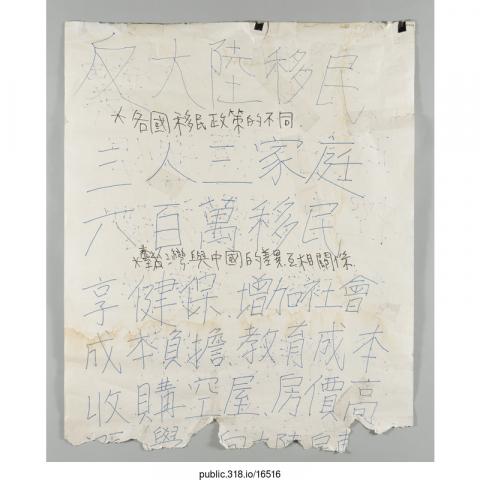 反大陸移民
*各國移民政策的不同
三人三家庭
六百萬移民
台灣與中國的 互相關係
享健保、增加社會
成本負擔、教育成本
收購空屋、房價高
學 向大陸
public.318.io/16516